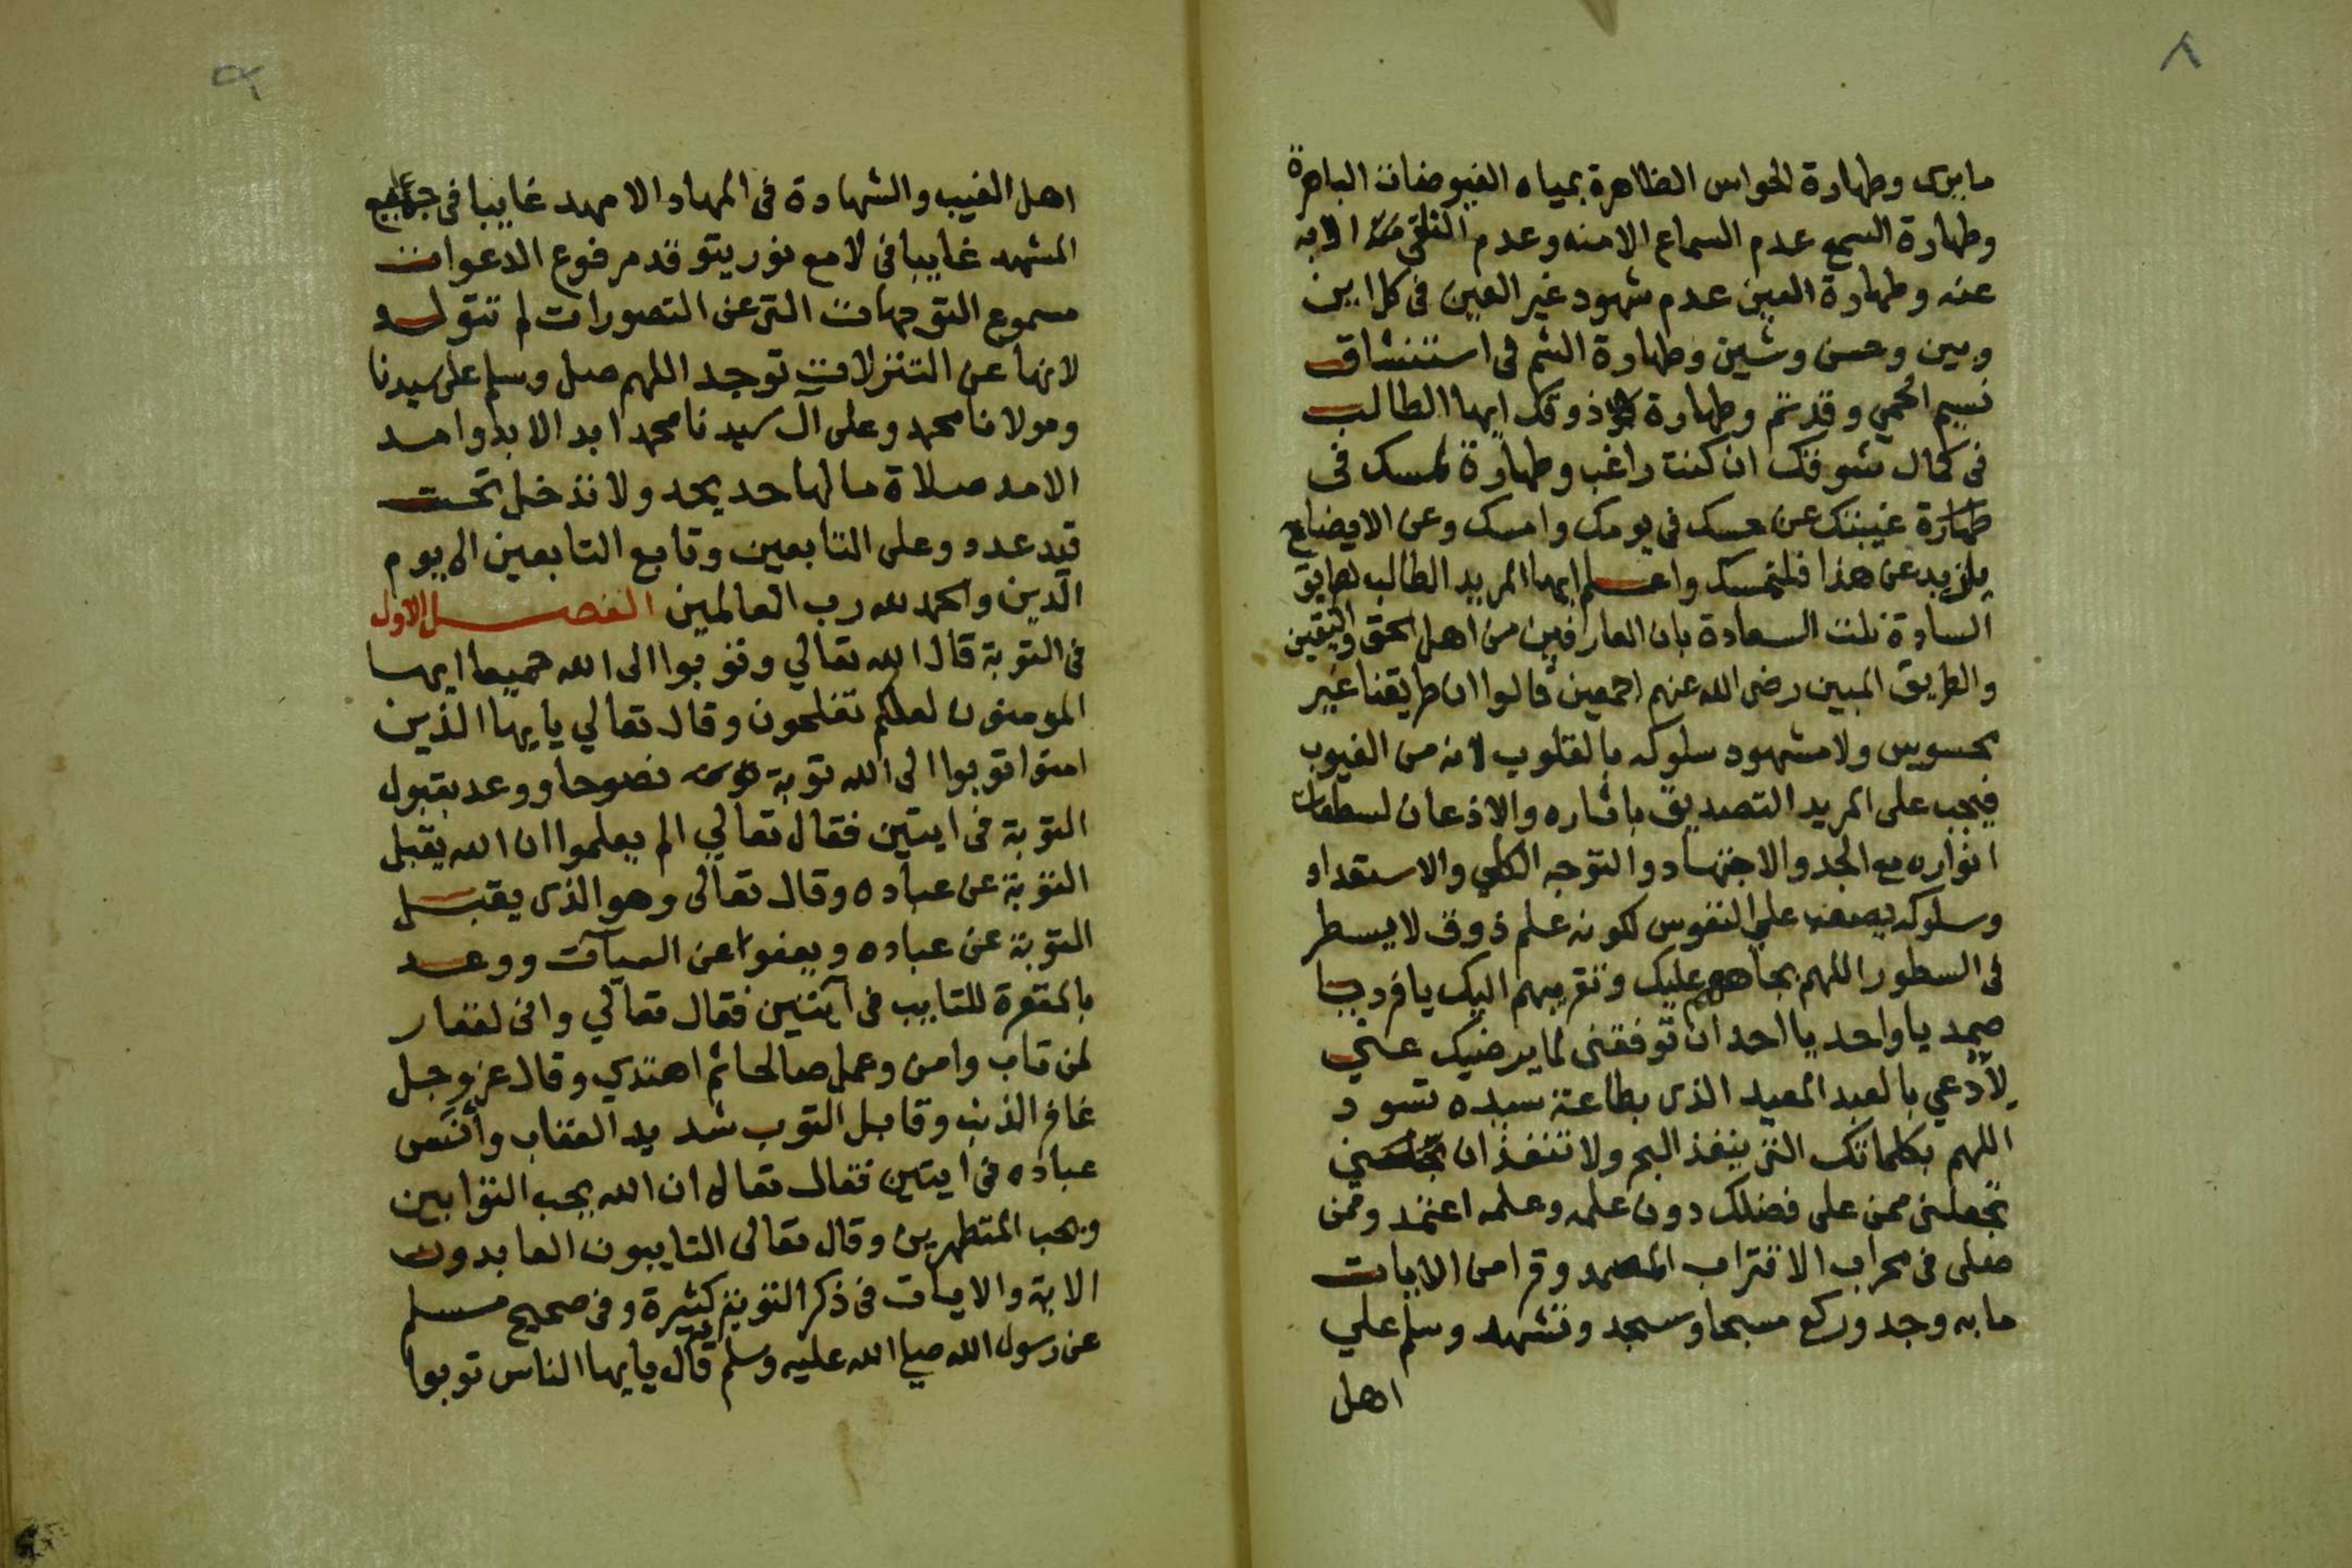 ٨
ما يرى وطهارة الحواس الظاهرة بمياه الفيوضات الباهرة
وطهارة السمع عدم السماع الا منه وعدم التلقي الا به
عنه وطهارة العين عدم شهود غير العين في كل اين
وبين وحسن وشين وطهارة الشم في استنشاق
نسيم الحمي وقد تم وطهارة ذوقك ايها الطالب
في كمال شوقك ان كنت راغب وطهارة لمسك في
طهارة غيبتك عن حسك في يومك وامسك وعن الايضاع
يلزيد عن هذا فلتمسك واعلم ايها المريد الطالب لطريق
السادة نلت السعادة بان العارفين من اهل الحق واليقين
والطريق المبين رضى الله عنهم اجمعين قالوا ان طريقنا غير
محسويس ولا مشهود سلوكه بالقلوب لانه من الغيوب
فيجب على المريد التصديق باثاره والاذعان لسطعات
انواره مع الجد والاجتهاد والتوجه الكلي والاستعداد
وسلوكه يصعب علي النفوس لكونه علم ذوق لا يسطر
في السطور اللهم بجاههم عليك وتقريبهم اليك يا فرد يا
صمد يا واحد يا احد ان توفقني لما يرضيك عني
لادعي بالعبد المعيد الذى بطاعة سيده تسود
اللهم بكلماتك التي ينفذ البحر ولا تنفذ ان
تجعلني ممن على فضلك دون علمه وعلمه اعتمد وممن
صلى في محراب الاقتراب المصمد وقرا من الايات
ما به وجد وركع مسبحا وسجد وتشهد وسلم علي
اهل
٩
اهل الغيب والشهادة في المهاد الامهد غايبا في جوامع
المشهد غايبا في لامع نور يتوقد مرفوع الدعوات
مسموع التوجهات التي عن التصورات لم تتولد
لانها عن التنزلات توجد اللهم صل وسلم على سيدنا
ومولانا محمد وعلى آل سيدنا محمد ابد الابد وامد
الامد صلاة ما لها حد يحد ولا تدخل تحت
قيد عدد وعلى التابعين وتابع التابعين الى يوم
الدين والحمد لله رب العالمين الفصل الاول
في التوبة قال الله تعالي وتوبوا الى الله جميعا ايها
المومنون لعلكم تفلحون وقال تعالي يايها الذين
امنوا توبوا الى الله توبة نصوحا ووعد بقبول
التوبة في ايتين فقال تعالي الم يعلموا ان الله يقبل
التوبة عن عباده وقال تعالى وهو الذى يقبل
التوبة عن عباده ويعفوا عن السيآت ووعد
بالمغفرة للتايب في آيتين فقال تعالي واني لغفار
لمن تاب وامن وعمل صالحا ثم اهتدي وقال عز وجل
غافر الذنب وقابل التوب شديد العقاب وأثنى
عباده في ايتين فقال تعالى ان الله يحب التوابين
ويحب المتطهرين وقال تعالى التايبون العابدون
الاية والايات في ذكر التوبة كثيرة وفي صحيح مسلم
عن رسول الله صلي الله عليه وسلم قال يايها الناس توبوا